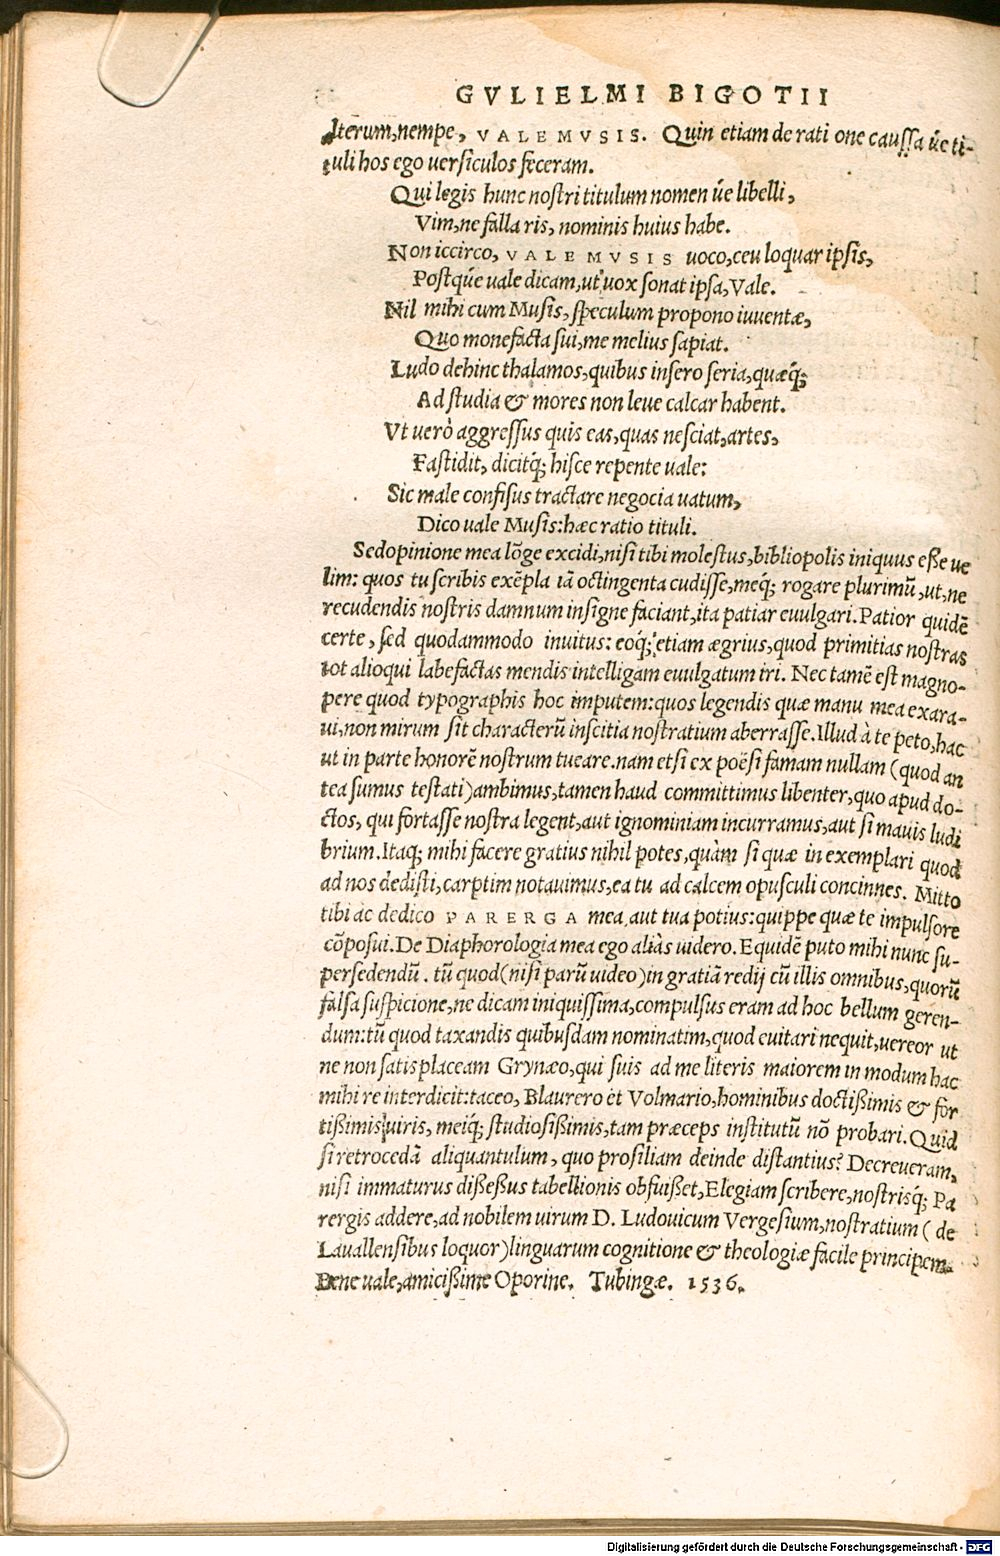 GVLIELMI BIGOTII
Iterum, nempe, VALE MVSIS. Quin etiam de rati one caussa úe ti-
tuli hos ego uersiculos feceram.
Qui legis hunc nostri titulum nomen úe libelli,
Vim, ne falla ris, nominis huius habe.
Non iccirco, VALE MVSIS uoco, ceu loquar ipsis,
Postq́ue uale dicam, ut uox sonat ipsa, Vale.
Nil mihi cum Musis, speculum propono iuuentæ,
Quo monefacta sui, me melius sapiat.
Ludo dehinc thalamos, quibus insero seria, quæq́;
Ad studia & mores non leue calcar habent.
Vt uerò aggressus quis eas, quas nesciat, artes,
Fastidit, dicitq́; hisce repente uale:
Sic male confisus tractare negocia uatum,
Dico uale Musis: hæc ratio tituli.
Sed opinione mea lõge excidi, nisi tibi molestus, bibliopolis iniquus eße ue
lim: quos tu scribis exẽpla iã octingenta cudisse, meq́; rogare plurimũ, ut, ne
recudendis nostris damnum insigne faciant, ita patiar euulgari. Patior quidẽ
certe, sed quodammodo inuitus: eoq́; etiam ægrius, quod primitias nostras
tot alioqui labefactas mendis intelligam euulgatum iri. Nec tamẽ est magno-
pere quod typographis hoc imputem: quos legendis quæ manu mea exara-
ui, non mirum sit characterũ inscitia nostratium aberrasse. Illud à te peto, hac
ut in parte honorẽ nostrum tueare. nam etsi ex poësi famam nullam (quod an
tea sumus testati) ambimus, tamen haud committimus libenter, quo apud do-
ctos, qui fortasse nostra legent, aut ignominiam incurramus, aut si mauis ludi
brium. Itaq; mihi facere gratius nihil potes, quàm si quæ in exemplari quod
ad nos dedisti, carptim notauimus, ea tu ad calcem opusculi concinnes. Mitto
tibi ac dedico PARERGA mea, aut tua potius: quippe quæ te impulsore
cõposui. De Diaphorologia mea ego aliàs uidero. Equidẽ puto mihi nunc su-
persedendũ. tũ quod (nisi parũ uideo) in gratiã redij cũ illis omnibus, quorũ
falsa suspicione, ne dicam iniquissima, compulsus eram ad hoc bellum geren-
dum: tũ quod taxandis quibusdam nominatim, quod euitari nequit, uereor ut
ne non satis placeam Grynæo, qui suis ad me literis maiorem in modum hac
mihi re interdicit: taceo, Blaurero et Volmario, hominibus doctißimis & for
tißimis uiris, meiq́; studiosißimis, tam præceps institutũ nõ probari. Quid
si retrocedã aliquantulum, quo prosiliam deinde distantius? Decreueram,
nisi immaturus dißeßus tabellionis obfuißet, Elegiam scribere, nostrisq́; Pa
rergis addere, ad nobilem uirum D. Ludouicum Vergesium, nostratium (de
Lauallensibus loquor) linguarum cognitione & theologiæ facile principem.
Bene uale, amicißime Oporine. Tubingæ. 1536.
Digitalisierung gefördert durch die Deutsche Forschungsgemeinschaft - DFG